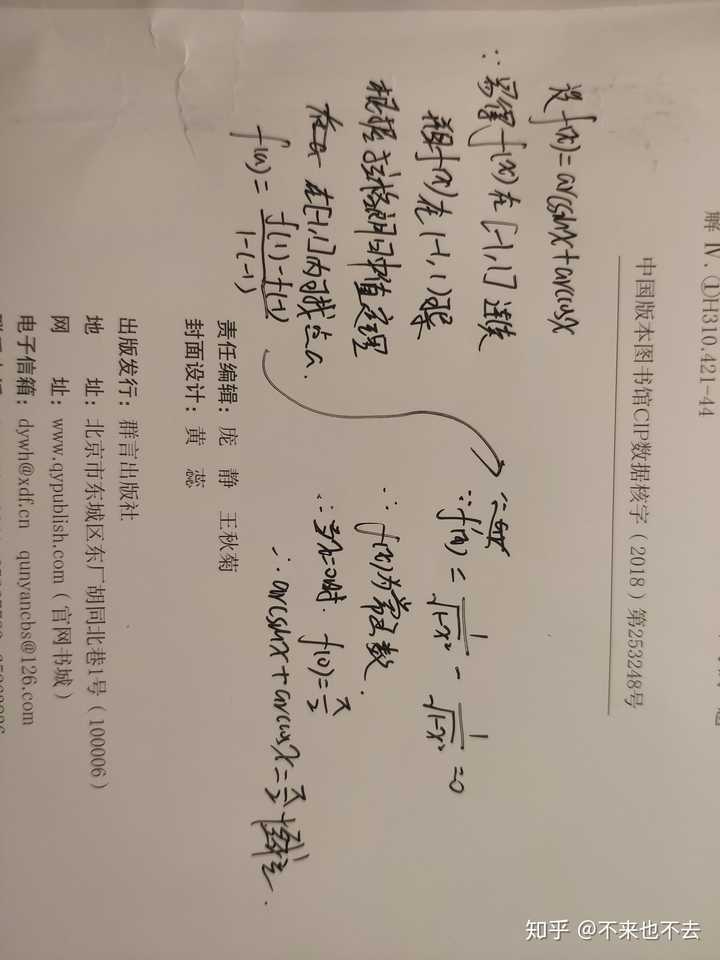 解 Ⅳ. ①H310.421-44
中国版本图书馆CIP数据核字（2018）第253248号
设 f(x)=arcsinx+arccosx
∵易得 f(x) 在 [-1, 1] 连续
f(x) 在 (-1, 1) 可导
根据拉格朗日中值定理
在[-1,1]内可找一点a.
f'(a) = f(1)-f(-1) / 1-(-1)
∵ f'(x) = 1/√1-x² - 1/√1-x² =0
∴ f(x)为常函数.
∵当x=0时. f(0)=π/2
∴ arcsinx+arccosx=π/2恒成立.
责任编辑：庞 静 王秋菊
封面设计：黄 蕊
出版发行：群言出版社
地 址：北京市东城区东厂胡同北巷1号（100006）
网 址：www.qypublish.com（官网书城）
电子信箱：dywh@xdf.cn qunyancbs@126.com
知乎 @不来也不去